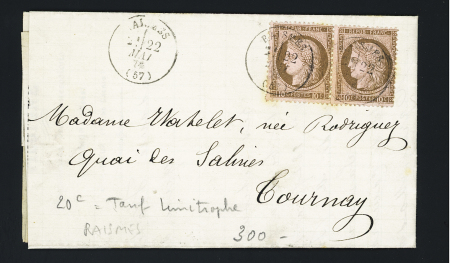 22
MAI
(57)
REPUB. FRANC.
REPUB. FRANC.
10 C. POSTES 10 C.
10 C. POSTES 10 C.
Madame Watelet, née Rodriguez
Quai des Salines
Tournay
20c = Tarif limitrophe
RAISMES
300 -